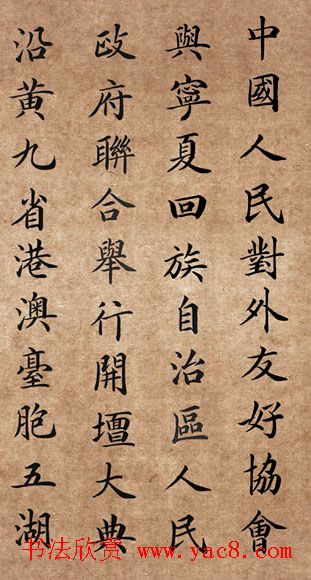 中國人民對外友好協會
與寧夏回族自治區人民
政府聯合舉行開壇大典
沿黃九省港澳臺胞五湖
书法欣赏 www.yac8.com